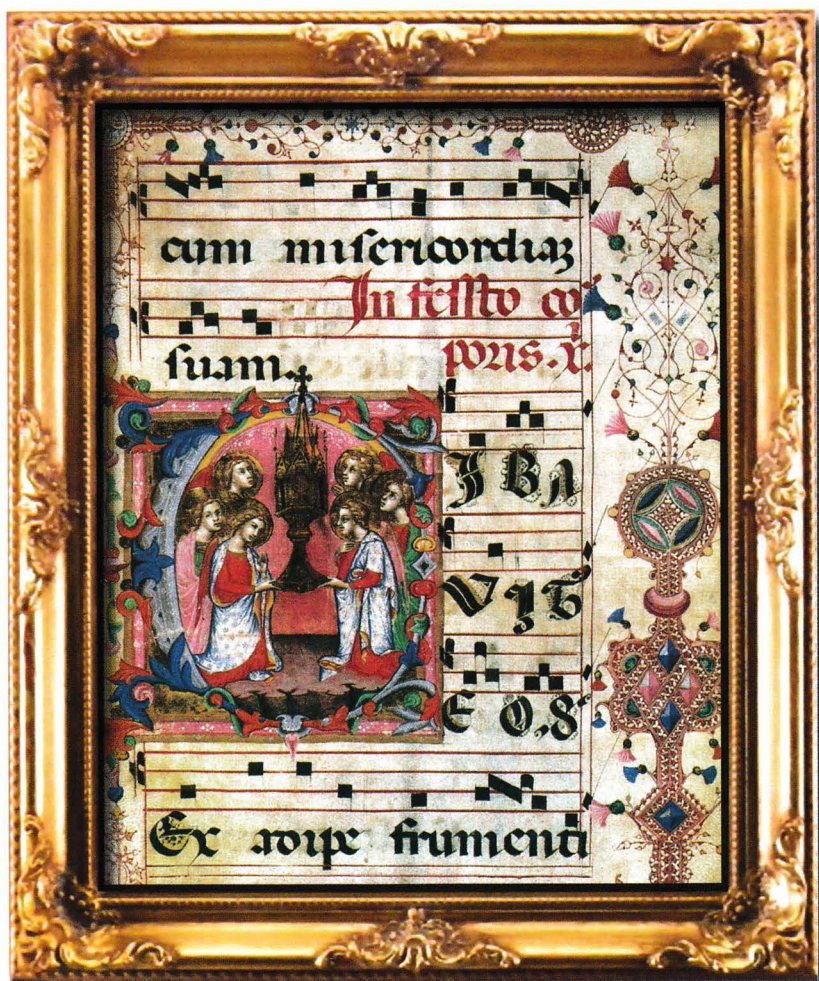 cum misericordiaz
In fessto cor
suam. poris. x.
CIBA
VIT
EOS
Ex adipe frumenti